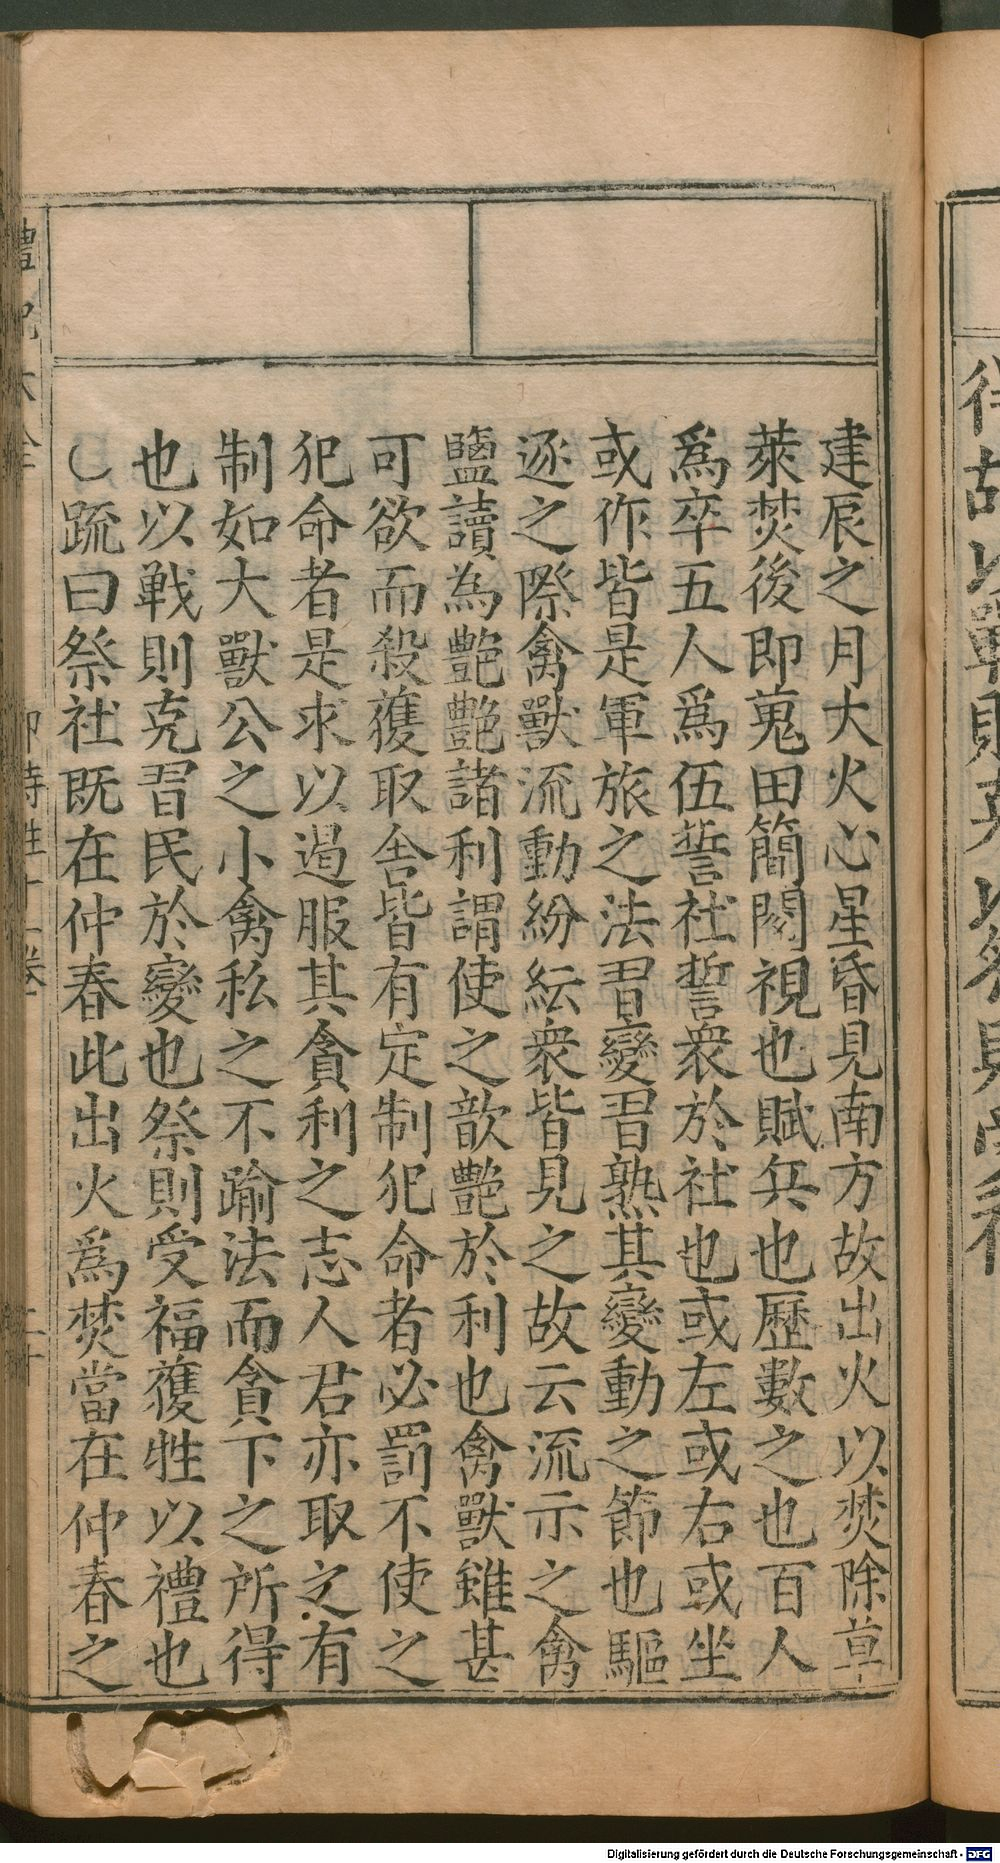 建辰之月大火心星昏見南方故出火以焚除草
萊焚後即蒐田簡閱視也賦兵也歷數之也百人
爲卒五人爲伍誓社誓衆於社也或左或右或坐
或作皆是軍旅之法習變習熟其變動之節也驅
逐之際禽獸流動紛紜衆皆見之故云流示之禽
鹽讀為艷艷諸利謂使之歆艷於利也禽獸雖甚
可欲而殺獲取舍皆有定制犯命者必罰不使之
犯命者是求以遏服其貪利之志人君亦取之有
制如大獸公之小禽私之不踰法而貪下之所得
也以戰則克習民於變也祭則受福獲牲以禮也
○疏曰祭社既在仲春此出火爲焚當在仲春之
禮記大全
特牲十一卷
故以戰則克以祭則受福
Digitalisierung gefördert durch die Deutsche Forschungsgemeinschaft - DFG